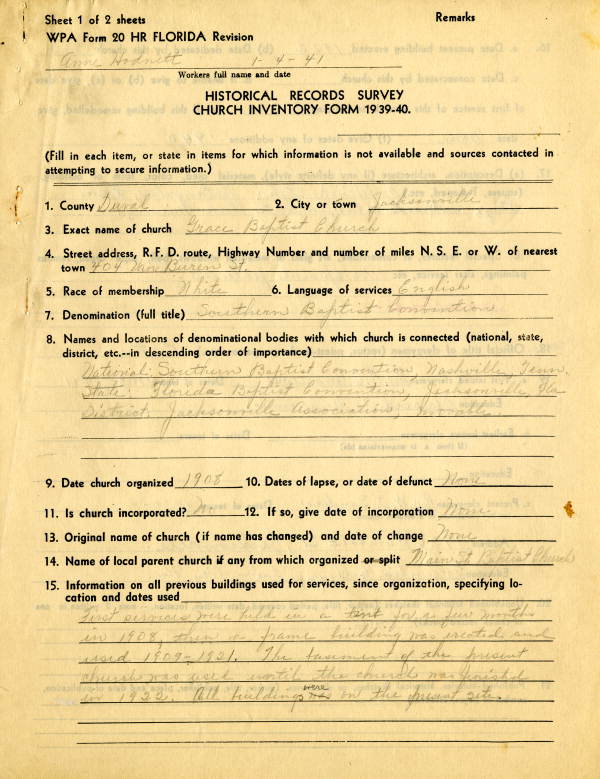 Sheet 1 of 2 sheets Remarks
WPA Form 20 HR FLORIDA Revision
Anne Hodnett 1-4-41
Workers full name and date
HISTORICAL RECORDS SURVEY
CHURCH INVENTORY FORM 1939-40.
(Fill in each item, or state in items for which information is not available and sources contacted in
attempting to secure information.)
1. County Duval 2. City or town Jacksonville
3. Exact name of church Grace Baptist Church
4. Street address, R. F. D. route, Highway Number and number of miles N. S. E. or W. of nearest
town 404 Van Buren St.
5. Race of membership White 6. Language of services English
7. Denomination (full title) Southern Baptist Convention
8. Names and locations of denominational bodies with which church is connected (national, state,
district, etc.--in descending order of importance)
National: Southern Baptist Convention, Nashville, Tenn.
State: Florida Baptist Convention, Jacksonville, Fla
District: Jacksonville Association,
9. Date church organized 1908 10. Dates of lapse, or date of defunct None
11. Is church incorporated? No 12. If so, give date of incorporation None
13. Original name of church (if name has changed) and date of change None
14. Name of local parent church if any from which organized or split Main St Baptist Church
15. Information on all previous buildings used for services, since organization, specifying lo-
cation and dates used
First services were held in a tent for a few months
in 1908, then a frame building was erected and
used 1909-1921. The basement of the present
church was used until the church was finished
in 1922. All buildings were on the present site.